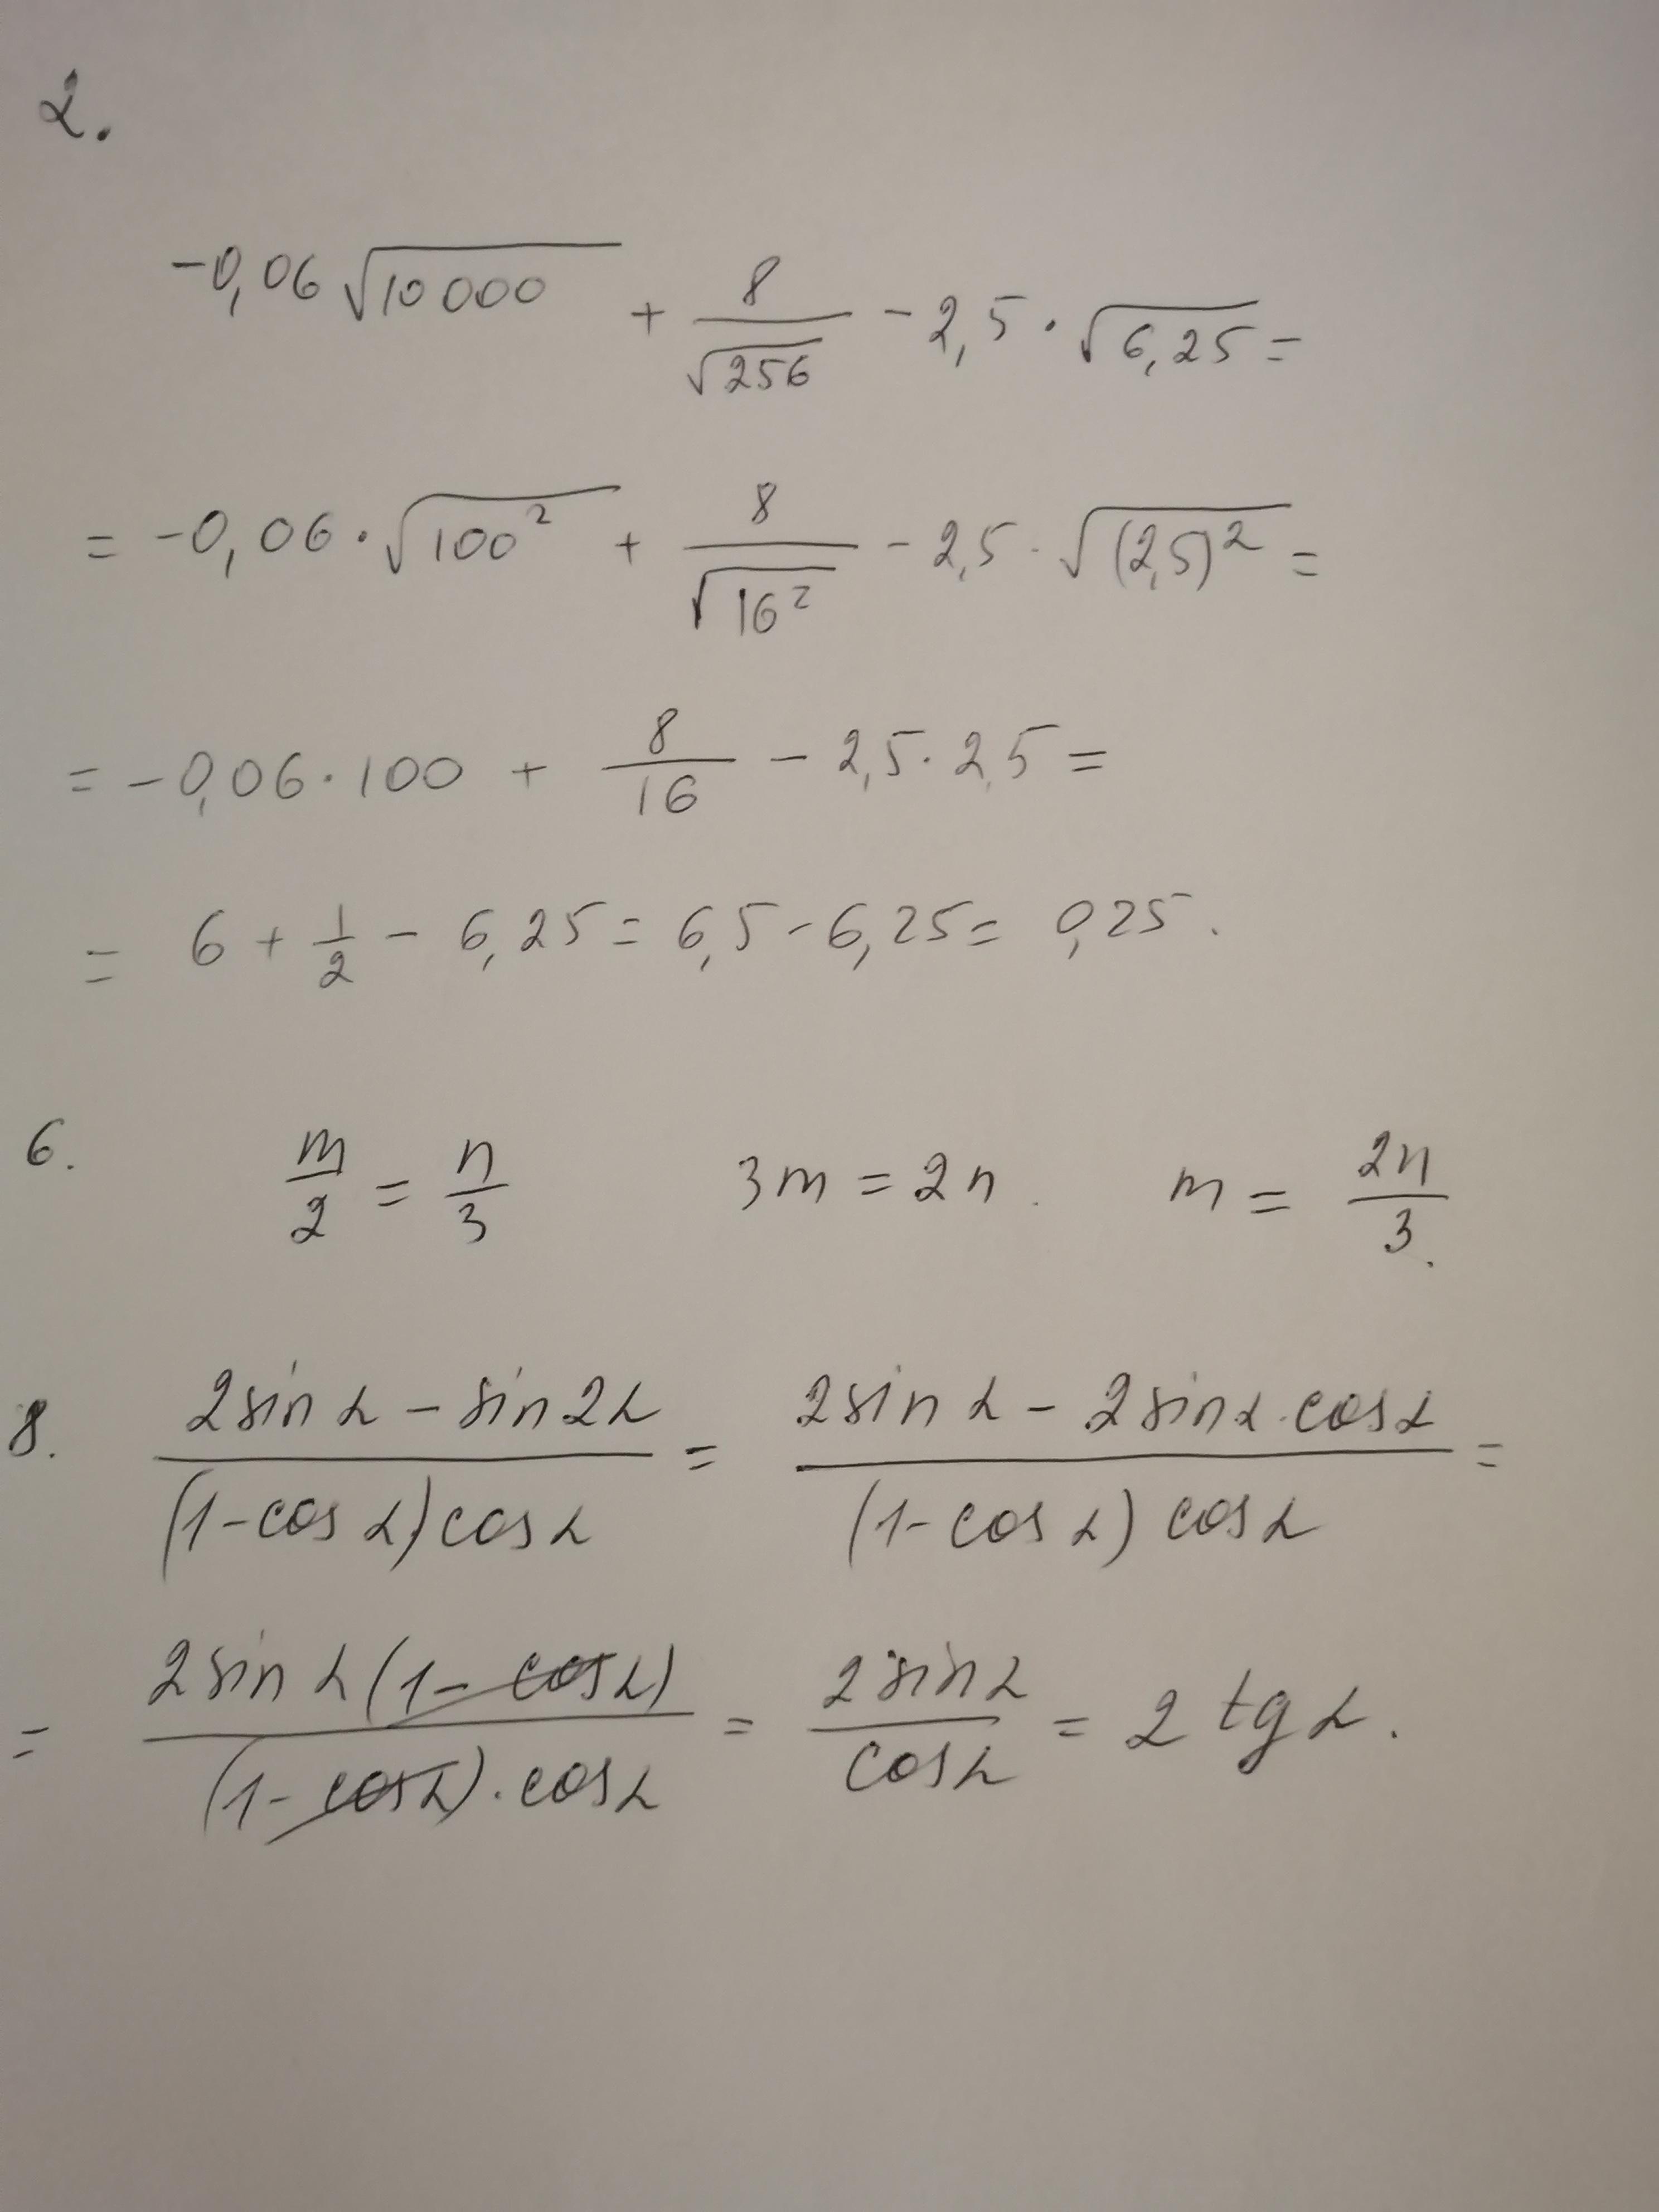 2.
-0,06 √10 000 + 8/√256 - 2,5 · √6,25 =
= -0,06 · √100² + 8/√16² - 2,5 · √(2,5)² =
= -0,06 · 100 + 8/16 - 2,5 · 2,5 =
= 6 + 1/2 - 6,25 = 6,5 - 6,25 = 0,25.
6. m/2 = n/3 3m = 2n. m = 2n/3.
8. (2sin α - sin 2α)/((1-cos α) cos α) = (2sin α - 2sin α · cos α)/((1-cos α) cos α) =
= (2sin α (1-cos α))/((1-cos α) · cos α) = 2 sin α/cos α = 2 tg α.